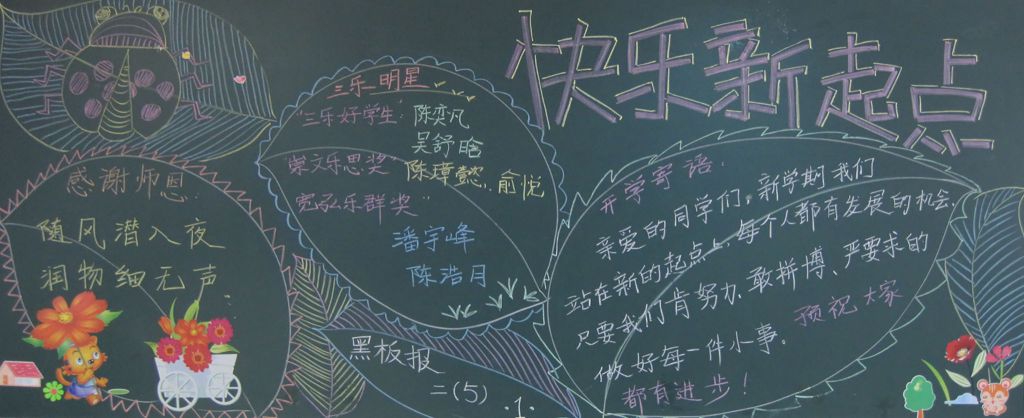 快乐新起点
三乐明星
"三乐好学生" 陈奕凡
吴舒晗
崇文乐思奖" 陈璋懿、俞悦
宽弘乐群奖"
潘宇峰
陈浩月
感谢师恩
随风潜入夜
润物细无声.
开学寄语
亲爱的同学们,新学期我们
站在新的起点上,每个人都有发展的机会.
只要我们肯努力、敢拼博、严要求的
做好每一件小事。预祝大家
都有进步!
黑板报
二(5)
.1.